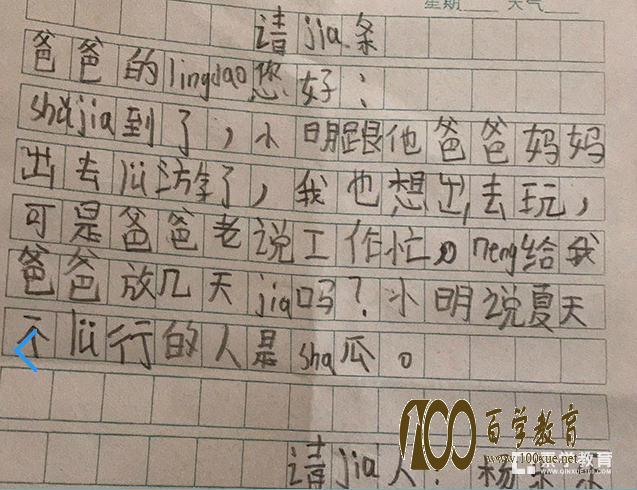 星期 天气
请jia条
爸爸的lingdao您好：
shǔjia到了，小明跟他爸爸妈妈
出去lǚ游拿了，我也想出去玩，
可是爸爸老说工作忙。neng给我
爸爸放几天jia吗？小明说夏天
不lǚ行的人是sha瓜。
请jia人：杨
100百学教育
www.100xue.net
亲学教育
WWW.QINXUE100.COM